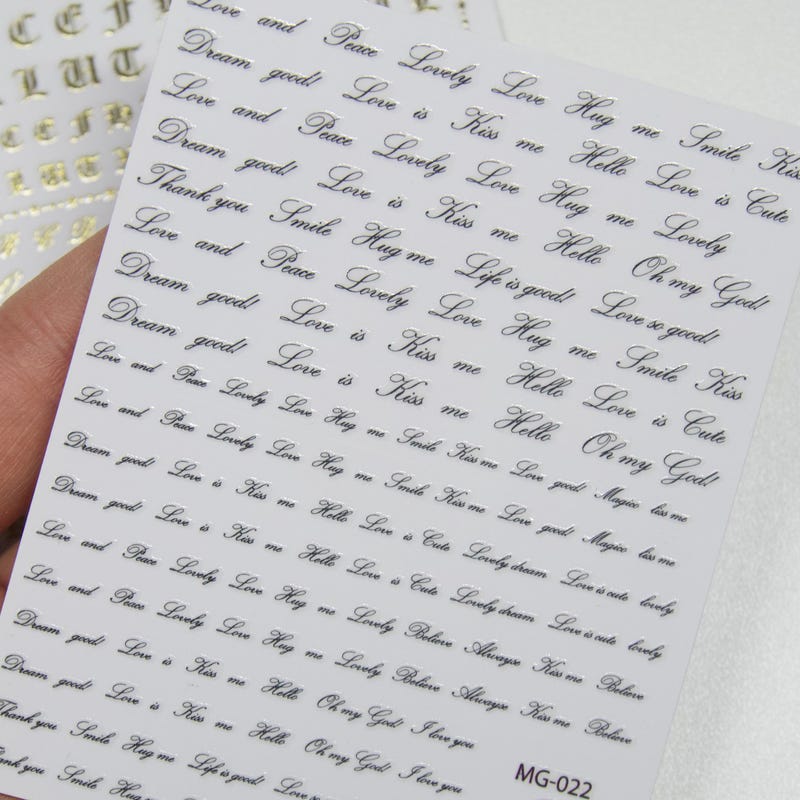 C E F
L U T
C E F H
L U T
Love and Peace Lovely Love Hug me Smile Kiss
Dream good! Love is Kiss me Hello Love is Cute
Love and Peace Lovely Love Hug me Lovely
Dream good! Love is Kiss me Hello Oh my God!
Thank you Smile Hug me Life is good! Love so good!
Love and Peace Lovely Love Hug me Smile Kiss
Dream good! Love is Kiss me Hello Love is Cute
Dream good! Love is Kiss me Hello Oh my God!
Love and Peace Lovely Love Hug me Smile Kiss me Love good! me
Love and Peace Lovely Love Hug me Smile Kiss me Love good! me
Dream good! Love is Kiss me Hello Love is Cute Lovely dream Love is cute lovely
Dream good! Love is Kiss me Hello Love is Cute Lovely dream Love is cute lovely
Love and Peace Lovely Love Hug me Lovely Believe Alwayse Kiss me Believe
Love and Peace Lovely Love Hug me Lovely Believe Alwayse Kiss me Believe
Dream good! Love is Kiss me Hello Oh my God! I love you
Dream good! Love is Kiss me Hello Oh my God! I love you
Thank you Smile Hug me Life is good! Love so
you Smile Hug
MG-022